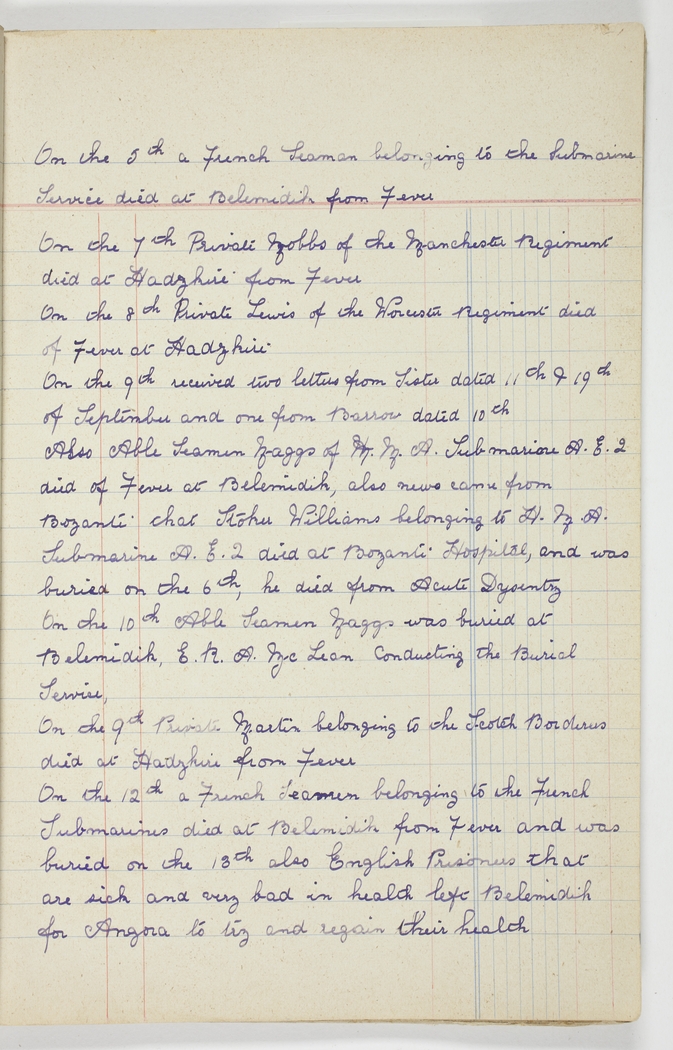 On the 5th a French Seaman belonging to the Submarine
Service died at Belemidik from Fever
On the 7th Private Hobbs of the Manchester Regiment
died at Hadzhiri from Fever
On the 8th Private Lewis of the Worcester Regiment died
of Fever at Hadzhiri
On the 9th received two letters from Sister dated 11th & 19th
of September and one from Barrow dated 10th
Also Able Seamen Naggs of H. M. A. Submarione A. E. 2
died of Fever at Belemidik, also news came from
Bozanti that Stoker Williams belonging to H. M. A.
Submarine A. E. 2 died at Bozanti Hospital, and was
buried on the 6th, he died from Acute Dysentry
On the 10th Able Seamen Naggs was buried at
Belemidik, E. R. A. Mc Lean Conducting the Burial
Service,
On the 9th Private Martin belonging to the Scotch Borderus
died at Hadzhiri from Fever
On the 12th a French Seamen belonging to the French
Submarines died at Belemidik from Fever and was
buried on the 13th also English Prisoners that
are sick and very bad in health left Belemidik
for Angora to try and regain their health